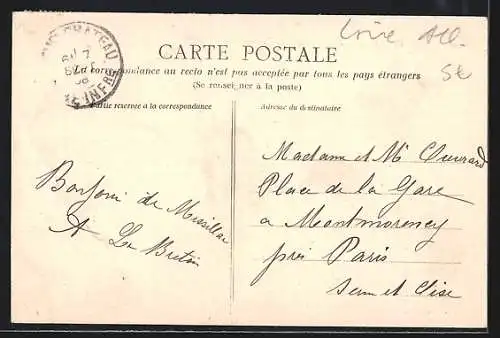 Loire All.
CHATEAU
INFRE
CARTE POSTALE
La correspondance au recto n'est pas acceptée par tous les pays étrangers
(Se renseigner à la poste)
Partie réservée à la correspondance
Adresse du destinataire
Bonjour de Missillac
A Le Breton
Madame et Mr Ouvrard
Place de la Gare
a Montmorency
près Paris
Seine et Oise